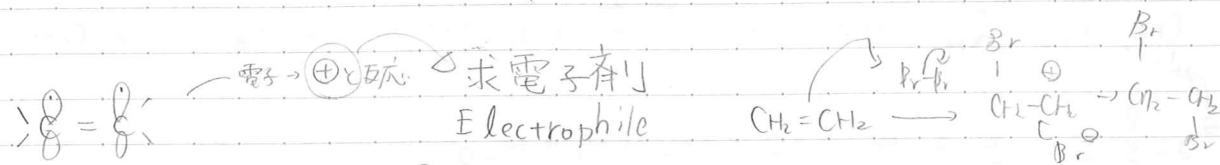 電子→⊕と反応 求電子剤
Electrophile
CH₂=CH₂ → Br-Br
Br ⊕ CH₂-CH₂ Br ⊖
→ Br CH₂-CH₂ Br